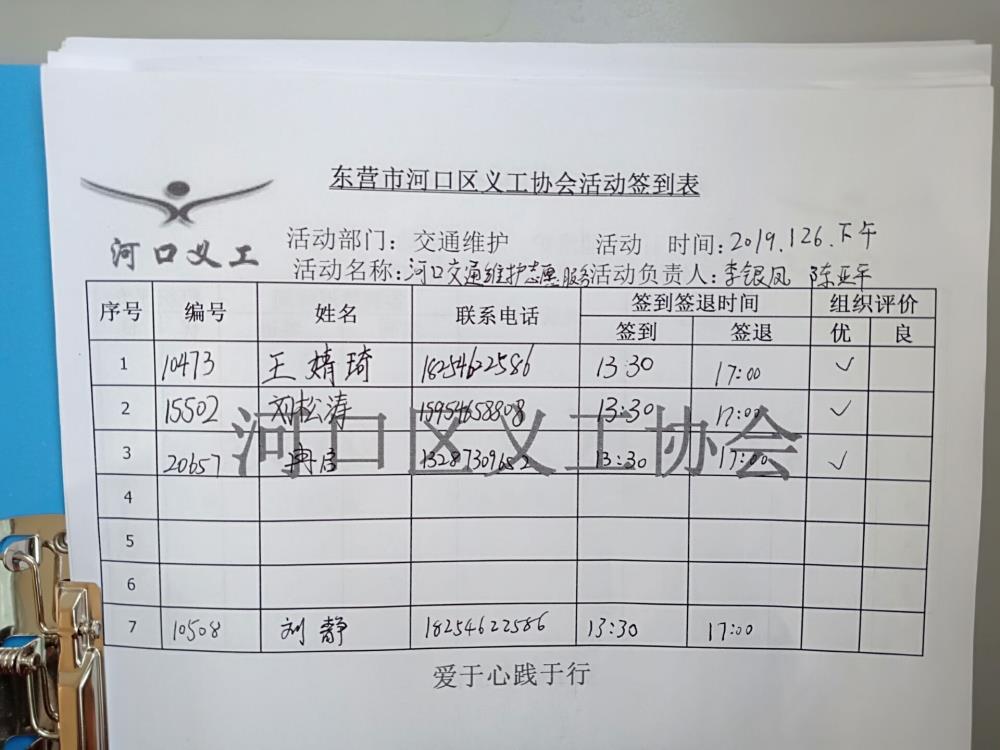 东营市河口区义工协会活动签到表
河口义工
活动部门：交通维护 活动 时间：2019.126.下午
活动名称：河口交通维护志愿服务 活动负责人：李银凤 陈亚平
序号 编号 姓名 联系电话 签到签退时间 组织评价
签到 签退 优 良
1 10473 王婧琦 18254622586 13:30 17:00 ✓
2 15502 刘松涛 15954658808 13:30 17:00 ✓
3 20657 13287309652 13:30 17:00 ✓
河口区义工协会
4
5
6
7 10508 刘静 18254622586 13:30 17:00
爱于心践于行